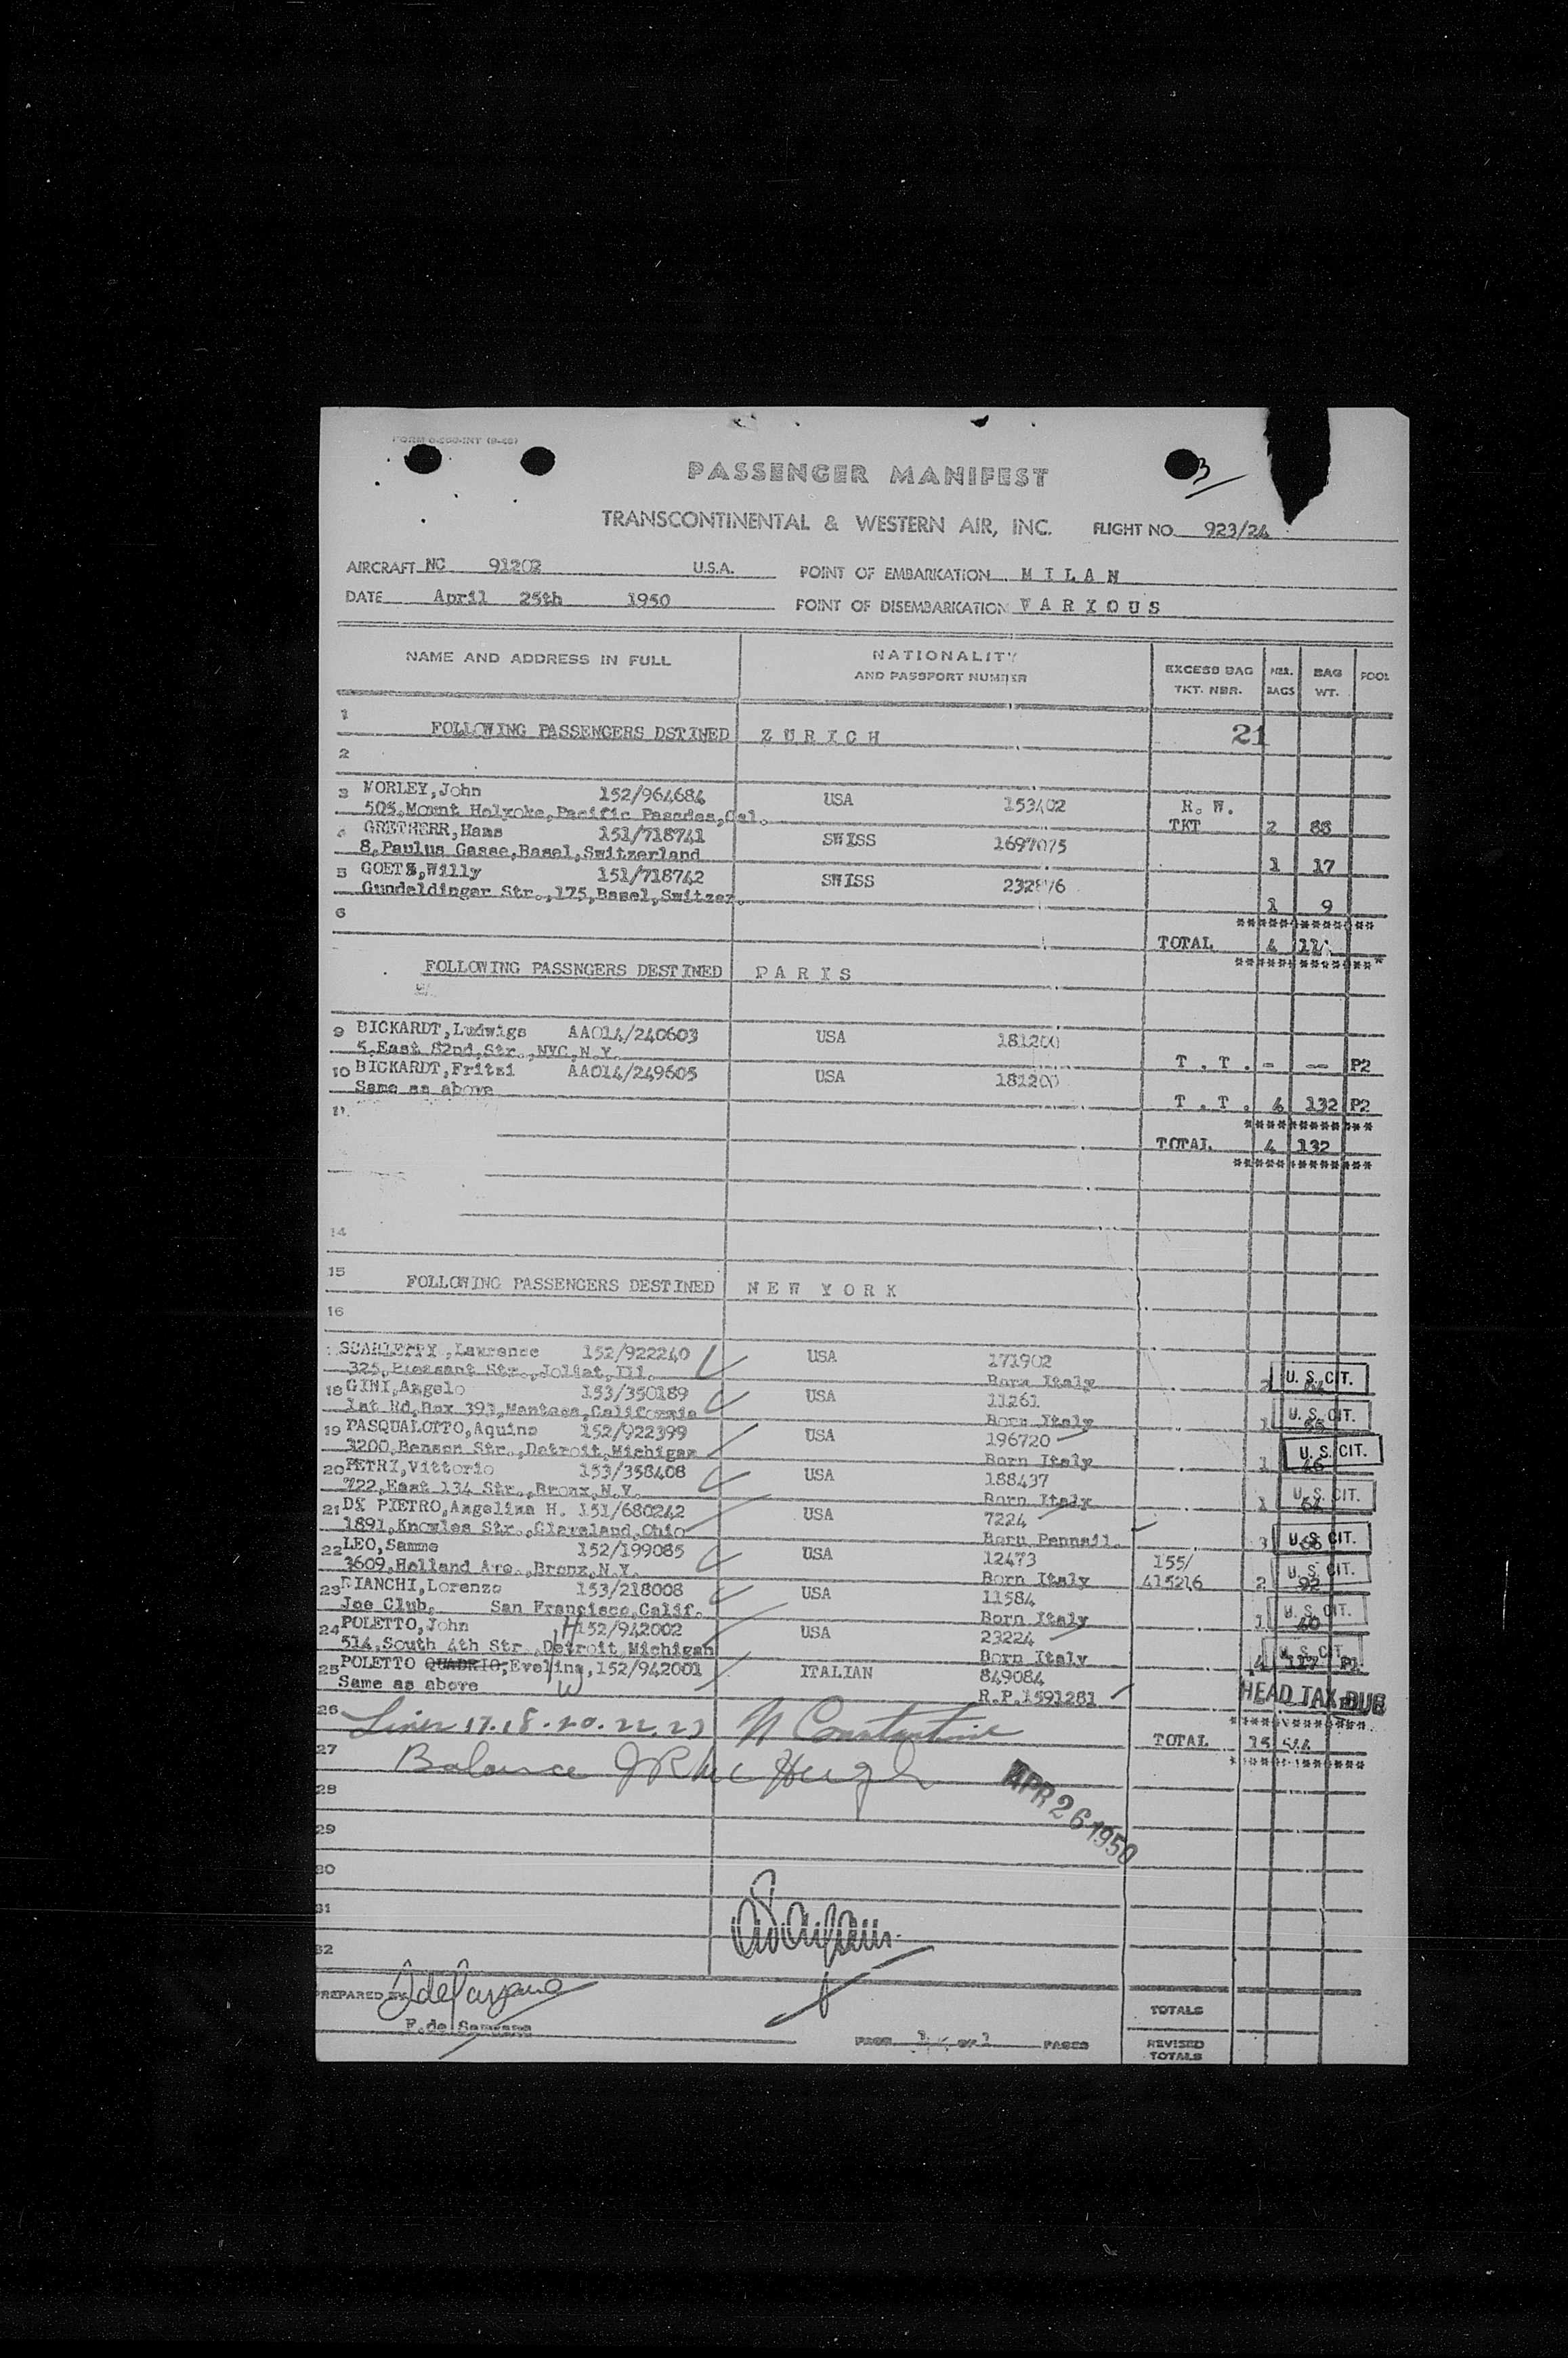 3
PASSENGER MANIFEST
TRANSCONTINENTAL & WESTERN AIR, INC. FLIGHT NO. 923/24
AIRCRAFT NC 91202 U.S.A. POINT OF EMBARKATION MILAN
DATE April 25th 1950 POINT OF DISEMBARKATION VARIOUS
NAME AND ADDRESS IN FULL NATIONALITY AND PASSPORT NUMBER EXCESS BAG TKT. NBR. NBR. BAGS BAG WT. POOL
1 FOLLOWING PASSENGERS DSTINED ZURICH 21
2
3 WORLEY,John 152/964684 USA 153402 R. W.
505,Mount Holyoke,Pacific Pasades,Cal. TKT 2 88
4 GRETHERR,Hans 151/718741 SWISS 1697075
8,Paulus Gasse,Basel,Switzerland 1 17
5 GOETZ,Willy 151/718742 SWISS
Gundeldinger Str.,175,Basel,Switzer. 1 9
6 *************
TOTAL 4
FOLLOWING PASSNGERS DESTINED PARIS
9 BICKARDT,Ludwigs AA014/240603 USA 181200
5,East 82nd,Str.,NYC,N.Y. T . T . - -- P2
10 BICKARDT,Fritzi AA014/249605 USA 181200
Same as above T . T . 4 132 P2
11
TOTAL 4 132
14
15 FOLLOWING PASSENGERS DESTINED NEW YORK
16
SCARLETTY,Lawrence 152/922240 USA 171902
325,Pleasant Str.,Joliet,Ill. Born Italy 2 U. S. CIT.
18 GINI,Angelo 153/350189 USA 11261
1st Rd,Box 393,Manteca,California Born Italy 1 U. S. CIT.
19 PASQUALOTTO,Aquino 152/922399 USA 196720
3200,Benson Str.,Detroit,Michigan Born Italy 1 46 U. S. CIT.
20 PETRI,Vittorio 153/358408 USA 188437
722,East 134 Str.,Bronx,N.Y. Born Italy 1 U. S. CIT.
21 DI PIETRO,Angelina H. 151/680242 USA 7224
1891,Knowles Str.,Cleveland,Ohio Born Pennsil. 3 U. S. CIT.
22 LEO,Samme 152/199085 USA 12473 155/
3609,Holland Ave.,Bronx,N.Y. Born Italy 415216 2 92 U. S. CIT.
23 BIANCHI,Lorenzo 153/218008 USA 11584
Joe Club, San Francisco,Calif. Born Italy 1 40 U. S. CIT.
24 POLETTO,John H 152/942002 USA 23224
514,South 4th Str.,Detroit,Michigan Born Italy 4 127 P1 U. S. CIT.
25 POLETTO QUADRIO,Evelina,152/942001 ITALIAN 849084
Same as above W R.P.1591281 HEAD TAX DUE
26 Lines 17.18.20.22.23 N Constantine
TOTAL 15 544
27 Balance
28 APR 26 1950
29
30
31
32
PREPARED BY
PAGE 1 OF 1 PAGES
TOTALS
REVISED TOTALS